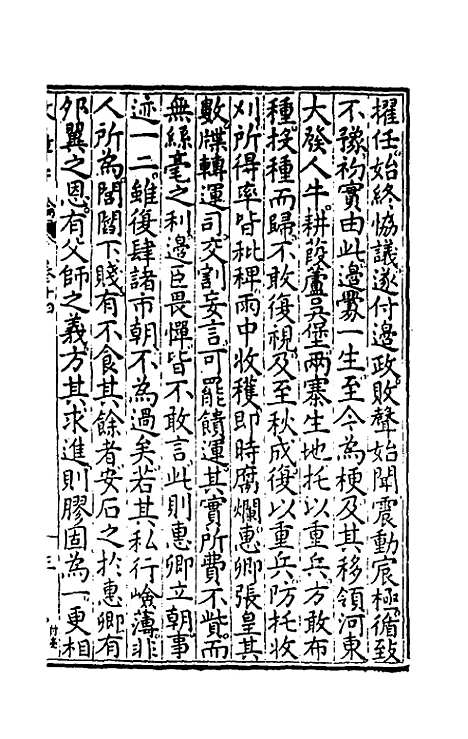 擢任始終協議遂付邊政敗聲始聞震動宸極循致
不豫初實由此邊釁一生至今為梗及其移領河東
大發人牛耕葭蘆吳堡兩寨生地托以重兵方敢布
種投種而歸不敢復視及至秋成復以重兵防托收
刈所得率皆秕稗雨中收穫即時腐爛惠卿張皇其
數牒轉運司交割妄言可罷饋運其實所費不貲而
無絲毫之利邊臣畏憚皆不敢言此則惠卿立朝事
迹一二雖復肆諸市朝不為過矣若其私行嶮薄非
人所為閭閻下賤有不食其餘者安石之於惠卿有
邜翼之恩有父師之義方其求進則膠固為一更相